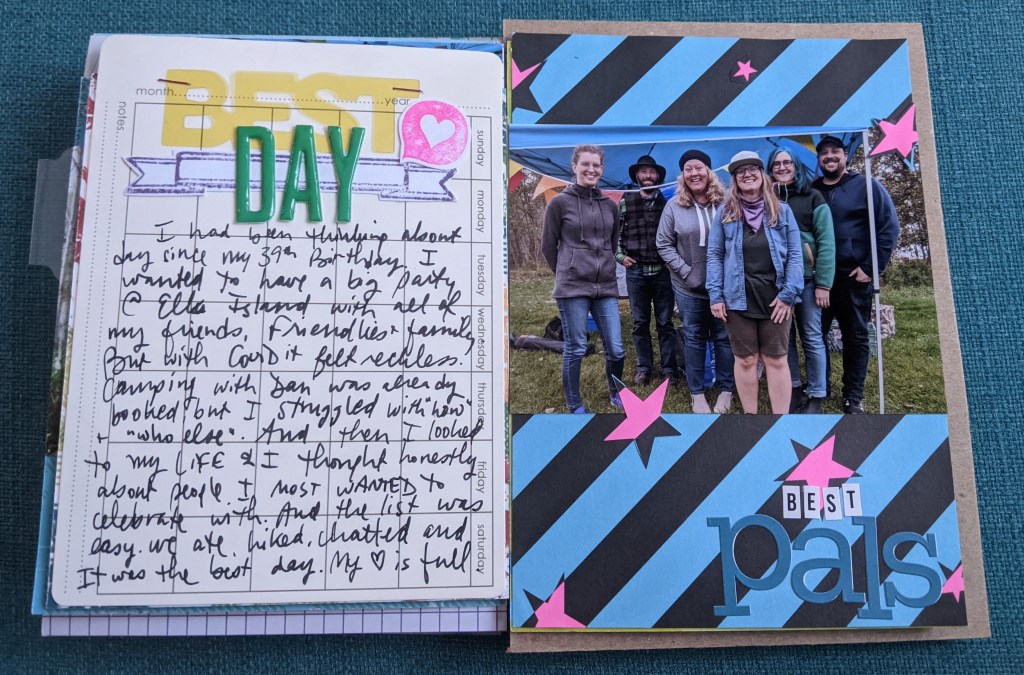 BEST
month year
DAY
notes
sunday
monday
tuesday
wednesday
thursday
friday
saturday
I had been thinking about
day since my 39th Birthday. I
wanted to have a big party
@ Elk Island with all of
my friends. Friendlies + family
But with Covid it felt reckless.
Camping with Dan was already
booked but I struggled with "how"
+ "who else". And then I looked
to my LIFE & I thought honestly
about people I MOST WANTED to
celebrate with. And the list was
easy. we ate, hiked, chatted and
It was the best day. My ♡ is full
BEST
pals